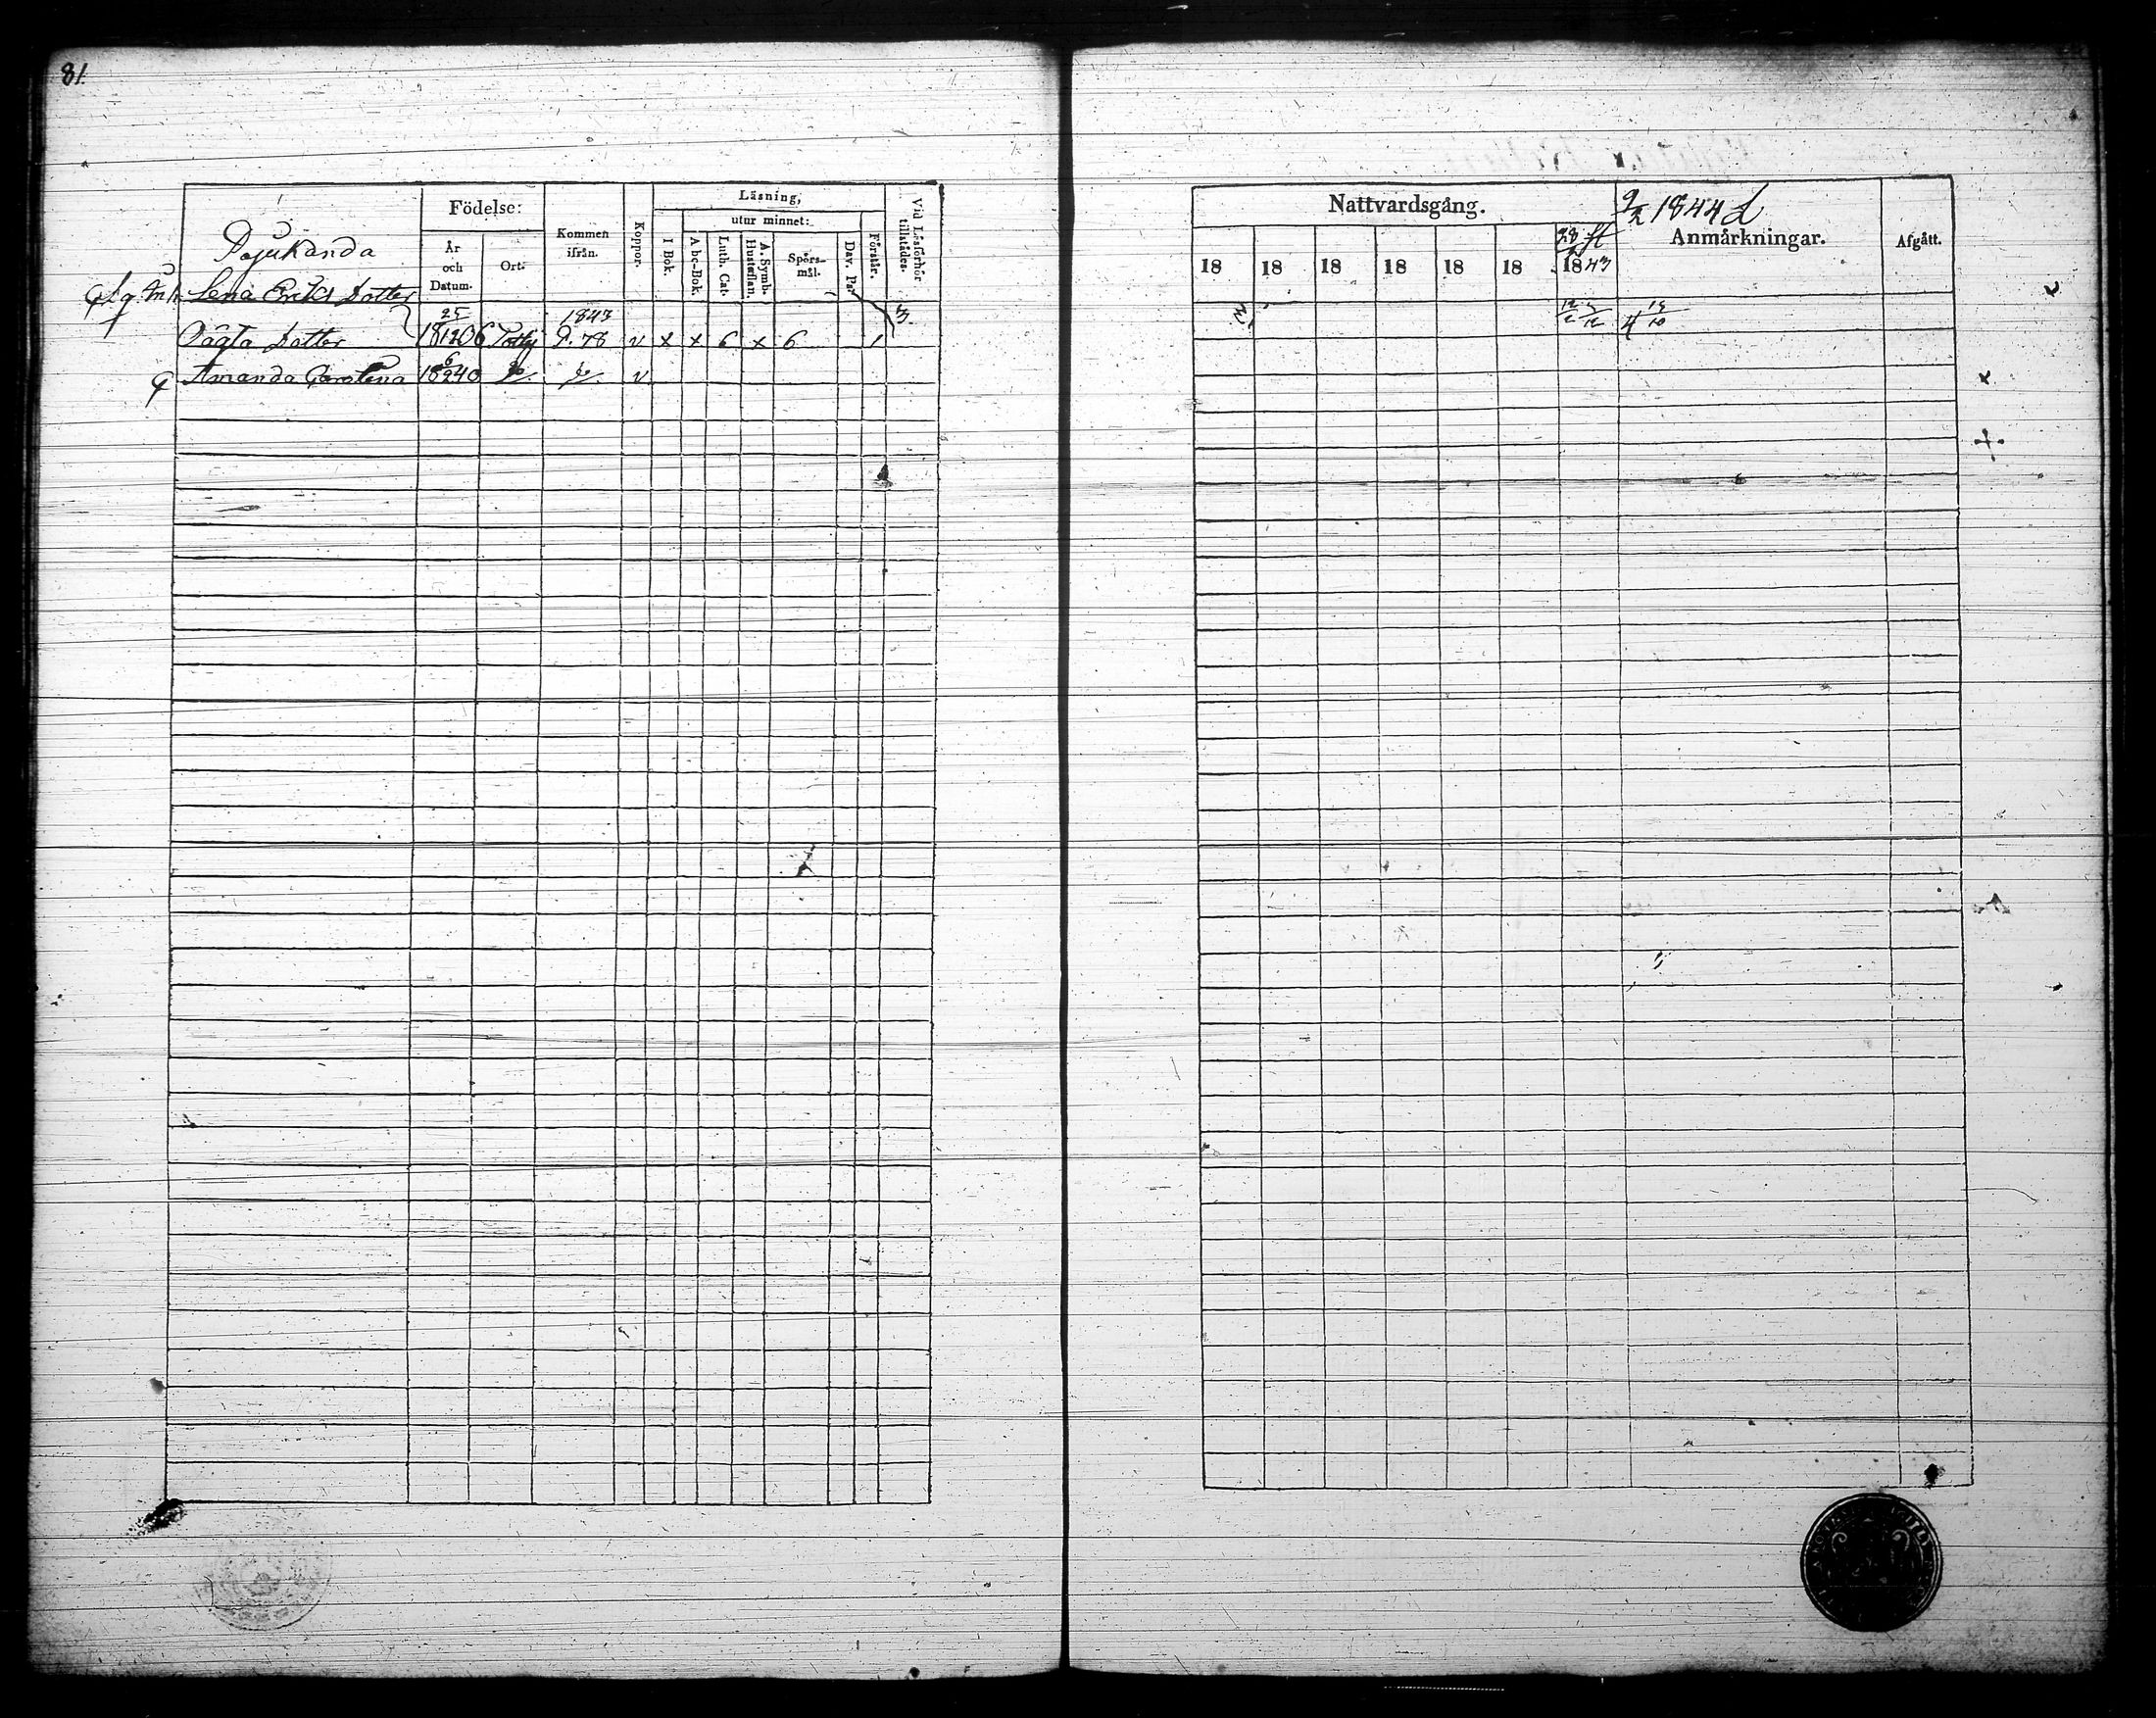 81.
Födelse:
Läsning,
utur minnet:
År
och
Datum.
Ort.
Kommen
ifrån.
Koppor.
I Bok.
Abc-Bok.
Luth. Cat.
A. Symb.
Hustaflan.
Spörs-
mål.
Dav. Ps.
Förstår.
Vid Läsförhör
tillstädes.
Lena Eriks Dotter
25
1843
Oägta Dotter
1812 06
P. 78
v x x 6 x 6 1
Amanda Carolina
6
18 2 40
Do Do v
Nattvardsgång.
9/2 1844
28
Anmärkningar.
Afgått.
18 18 18 18 18 18 1843
12/2 3/12
4 15/10